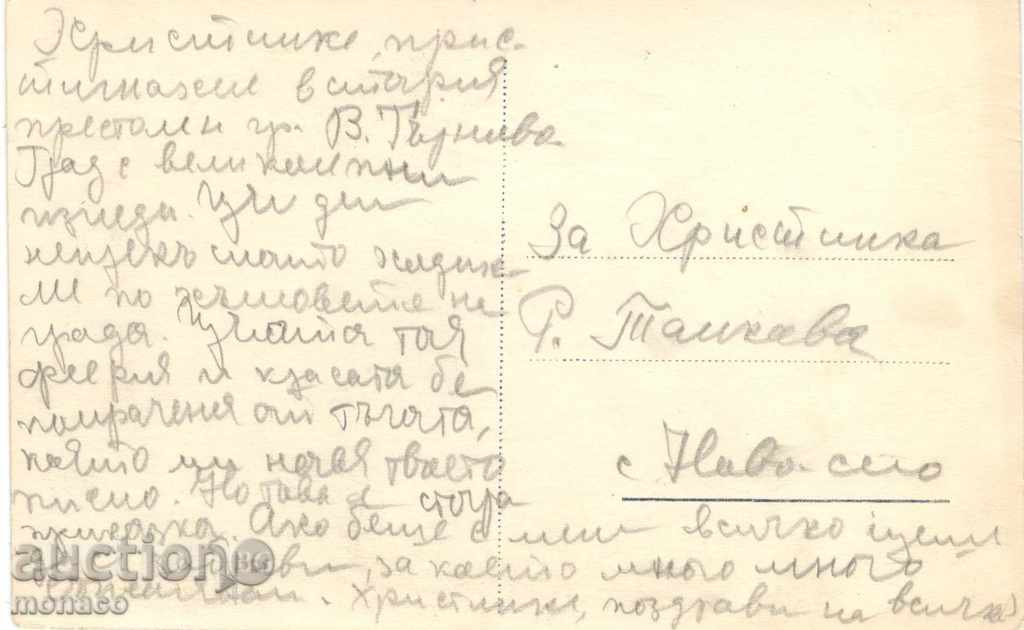 Христинке, прис-
тигнахме в стария
престолен гр. В. Търнова.
Град с великолепни
изгледи. Цял ден
по хълмовете на
града. Цялата тая
феерия и красота бе
помрачена от тъгата,
която ми навя твоето
писмо. Но това е стара
Ако беше с мен всичко щеше
за което много много
Христинке, поздрави на всички
За Христинка
Р. Танкова
с Ново село
auction BG
monaco